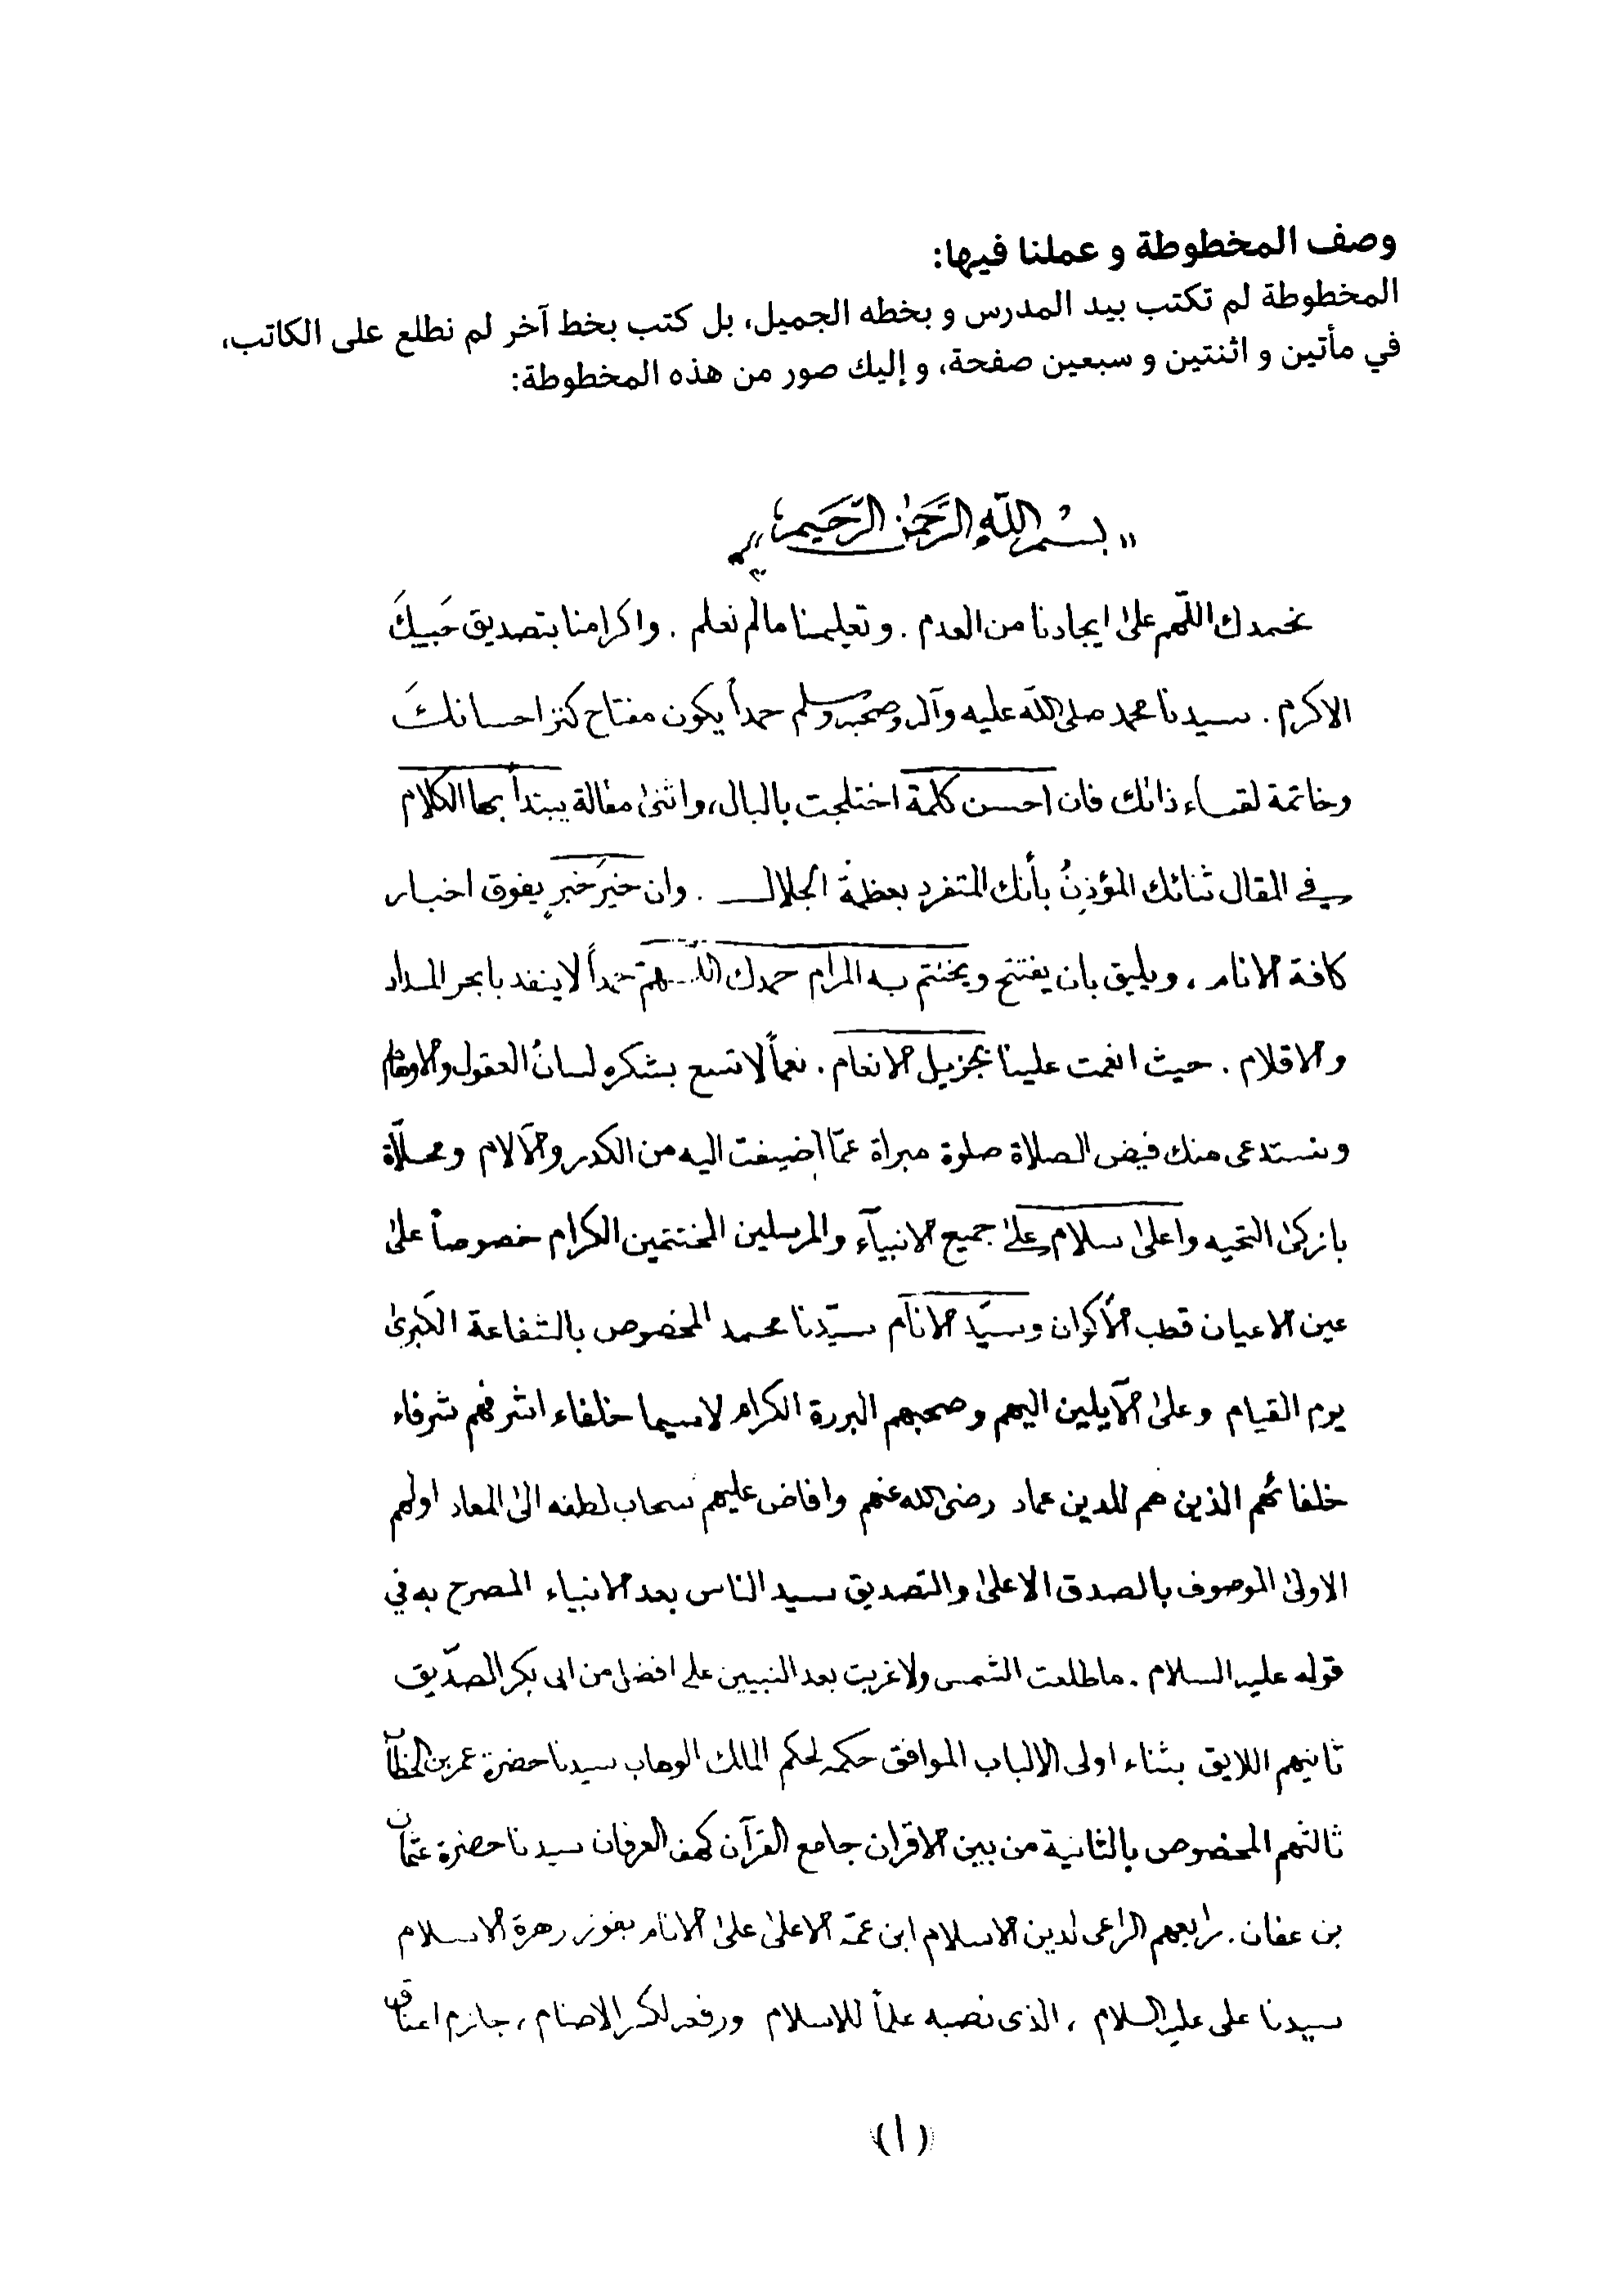 وصف المخطوطة و عملنا فيها:
المخطوطة لم تكتب بيد المدرس و بخطه الجميل، بل كتب بخط آخر لم نطلع على الكاتب،
في مأتين و اثنتين و سبعين صفحة، و إليك صور من هذه المخطوطة:
"بسم الله الرحمن الرحيم"
نحمدك اللّهم على ايجادنا من العدم . وتعليمنا مالم نعلم . واكرامنا بتصديق حَبيبكَ
الاكرم . سيدنا محمد صلى الله عليه وآله وصحبه وسلم حمداً يكون مفتاح كنز احسانكَ
وخاتمة لقاء ذاتك فان احسن كلمة اختلجت بالبال، واثنى مقالة يبتدأ بها الكلام
في المقال ثنائك المؤذِنُ بأنك المتفرد بعظمة الجلال . وان خيرَ خبرٍ يفوق اخبار
كافة الانام . ويليق بان يفتتح ويختتم به المرام حمدك اللهمّ حمداً لا ينفد بابحر المداد
والاقلام . حيث انعمت علينا بجزيل الانعام . نعماً لا تسع بشكره لسانُ العقول والاوهام
ونستدعى منك فيض الصلاة صلوة مبراة عمّا اضيفت اليه من الكدر والآلام ومحلّاة
بازكى التحيه واعلى سلام على جميع الانبيآء والمرسلين المختتمين الكرام خصوصاً على
عين الاعيان قطب الأكوان وسيّد الانآم سيّدنا محمد المخصوص بالشفاعة الكبرى
يوم القيام وعلى الآيلين اليهم وصحبهم البررة الكرام لاسيما خلفاء اشرفهم شرفاء
خلفائهم الذين هم للدين عماد رضى الله عنهم وافاض عليهم سحاب لطفه الى المعاد اولهم
الاولى الموصوف بالصدق الاعلى والتصديق سيد الناس بعد الانبياء المصرح به في
قوله عليه السلام . ماطلعت الشمس ولا غربت بعد النبيين على افضل من ابى بكر الصدّيق
ثانيهم اللايق بثناء اولى الالباب الموافق حكمه لحكم المالك الوهاب سيدنا حضرة عمر بن الخطاب
ثالثهم المخصوص بالثانية من بين الاقران جامع القرآن كهف العرفان سيدنا حضرة عثمان
بن عفان . رابعهم الراعى لدين الاسلام ابن عمّه الاعلى على الانام بفوز رهرة الاسلام
سيدنا على عليه السلام ، الذى نصبه علماً للاسلام ورفعه لكسر الاصنام ، جازم اعناق
(١)